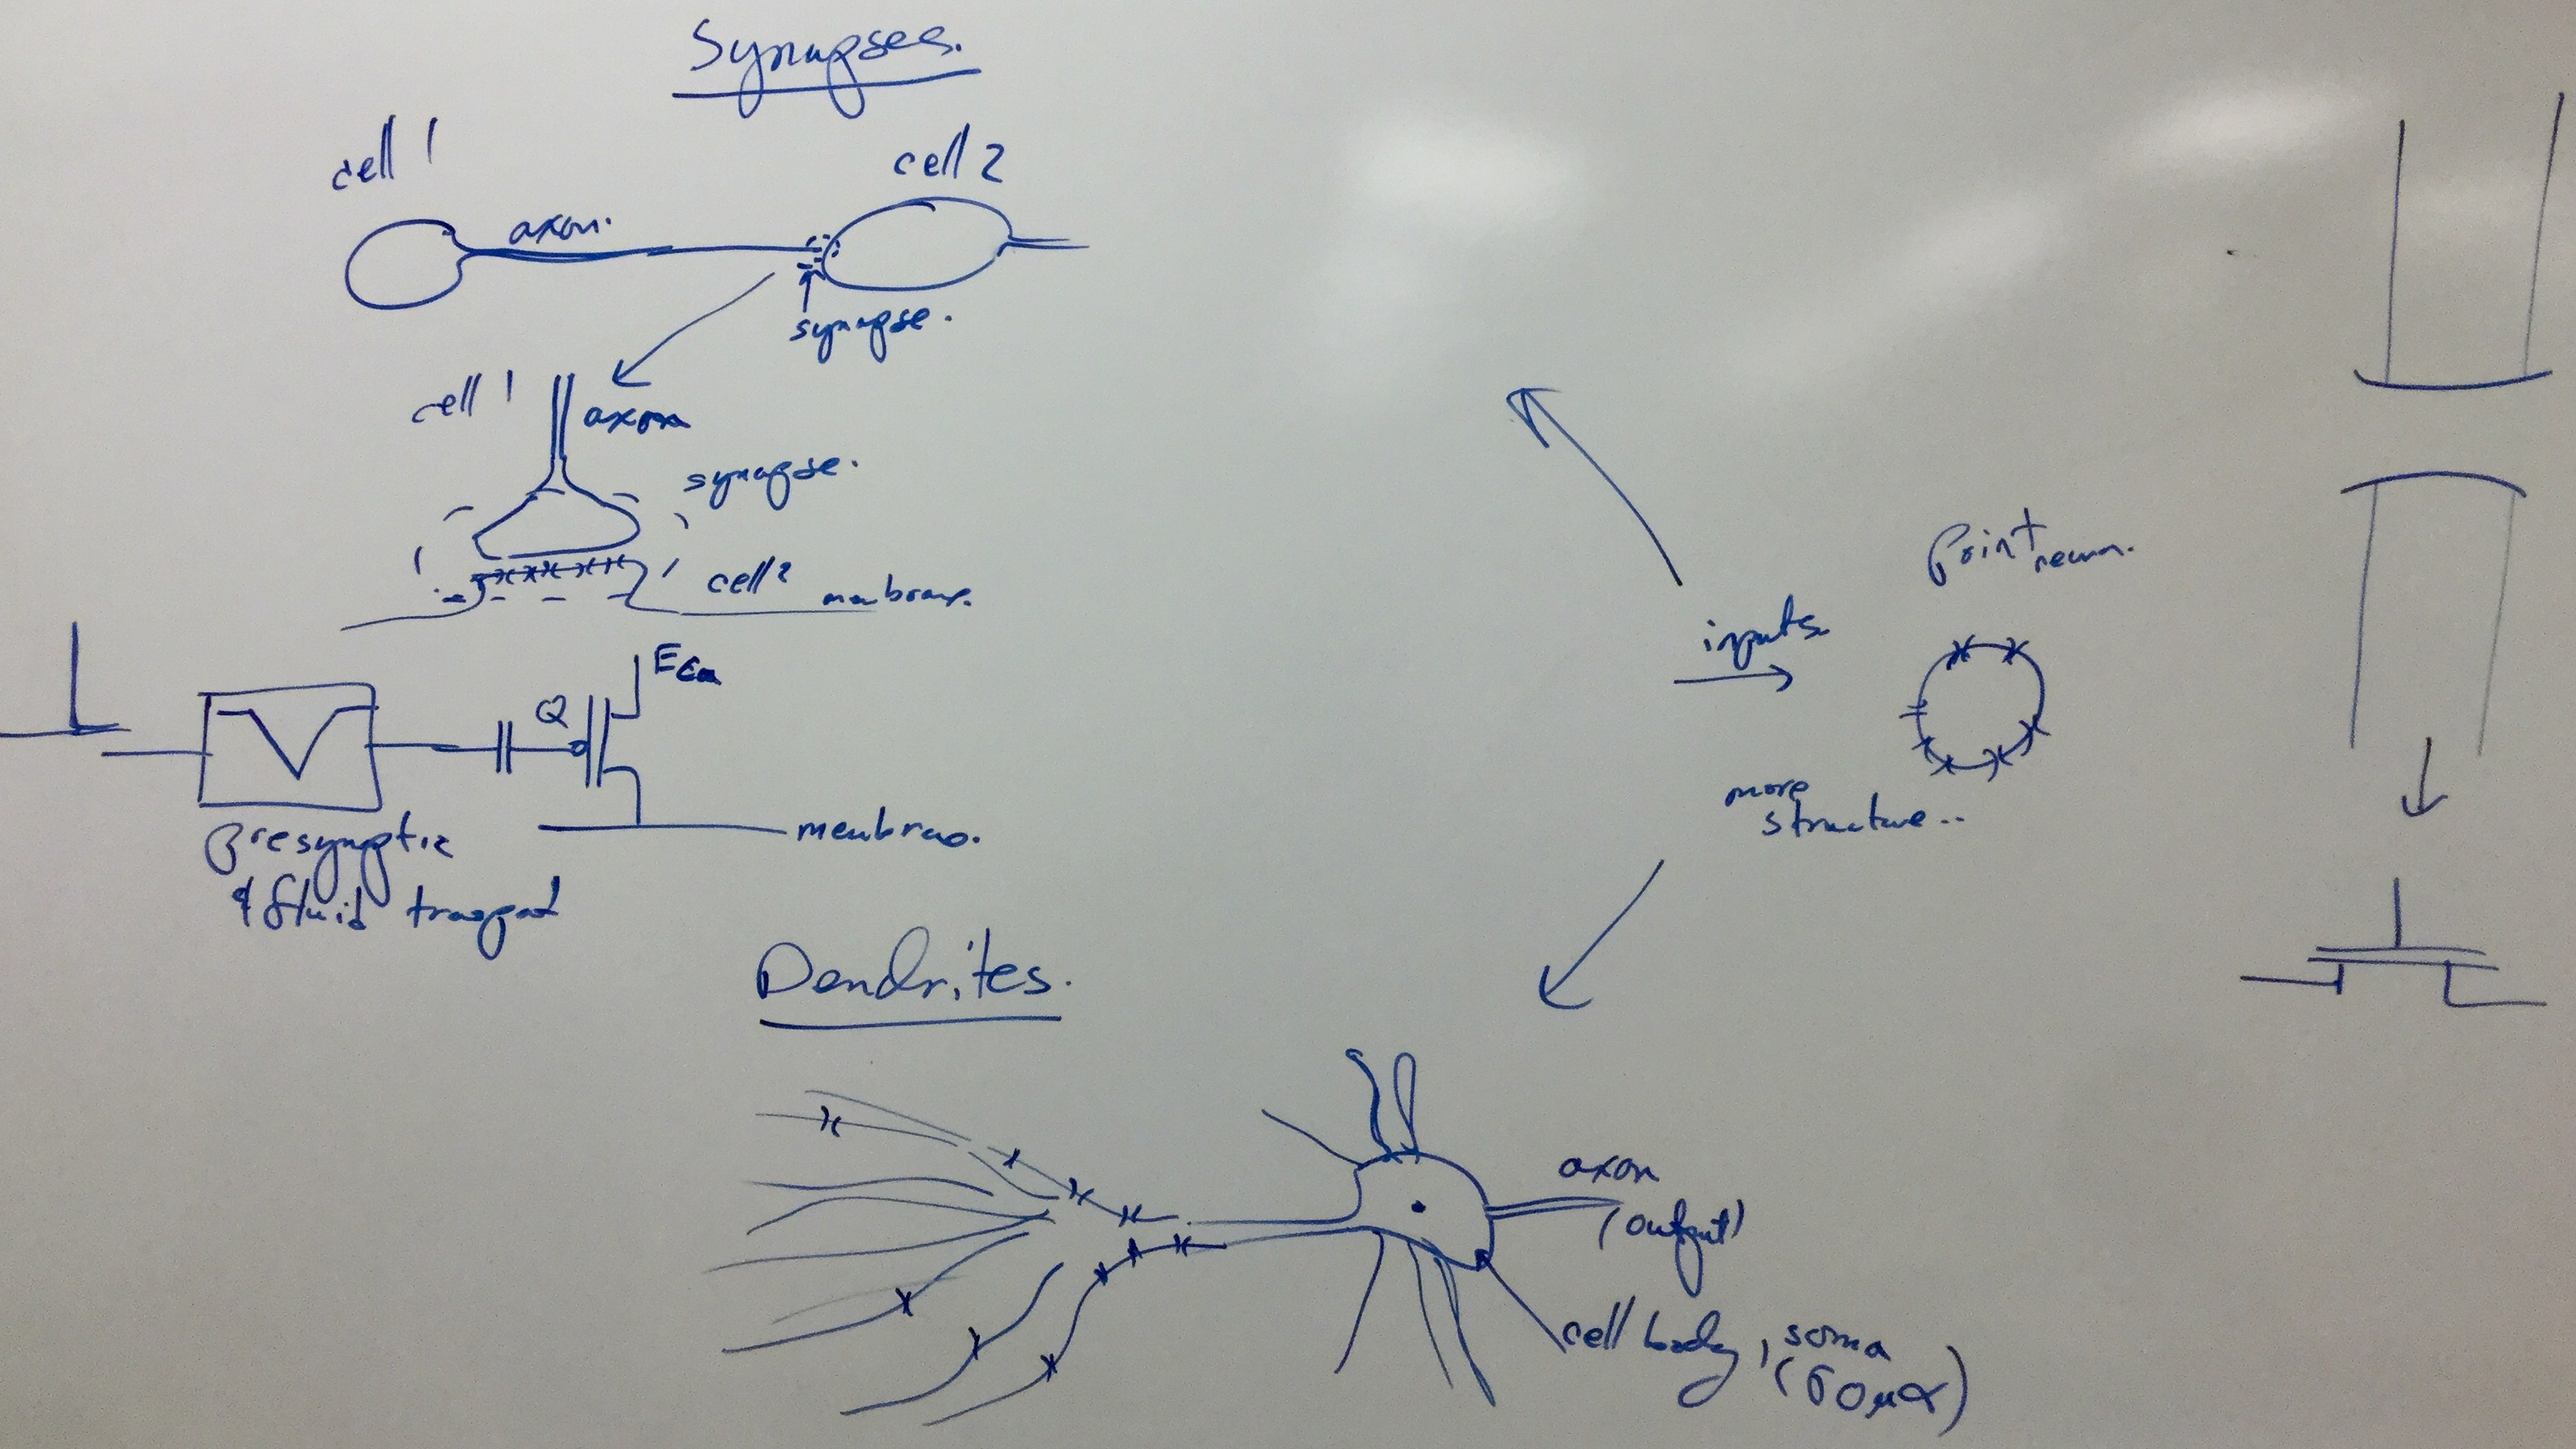 Synapses.
cell 1
cell 2
axon.
synapse.
cell 1
axon
synapse.
cell 2
membrane.
Q
membrane.
Presynaptic
& fluid transport
point
neuron.
inputs
more
structure..
Dendrites.
axon
(output)
cell body, soma